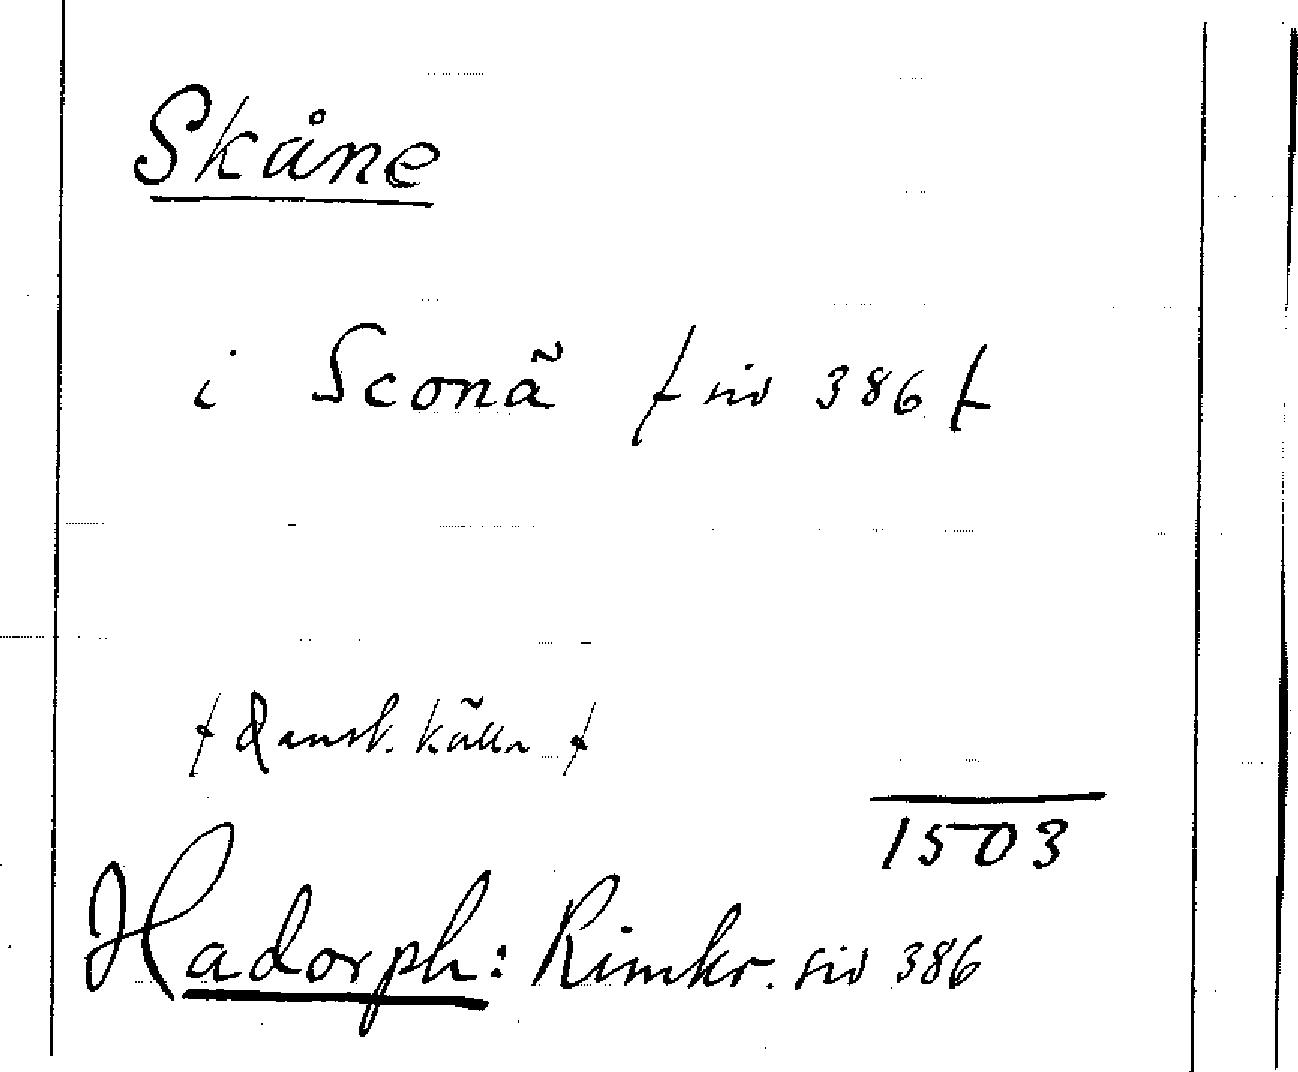 Skåne
i Sconã /- sid 386 /-
/- Dansk. källa /-
1503
Hadorph: Rimkr. sid 386